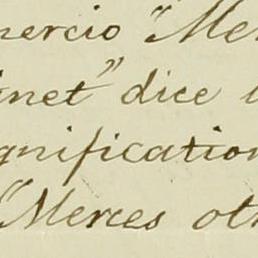 mercio "Mer
inet" dice l
gnification
"Merces oth